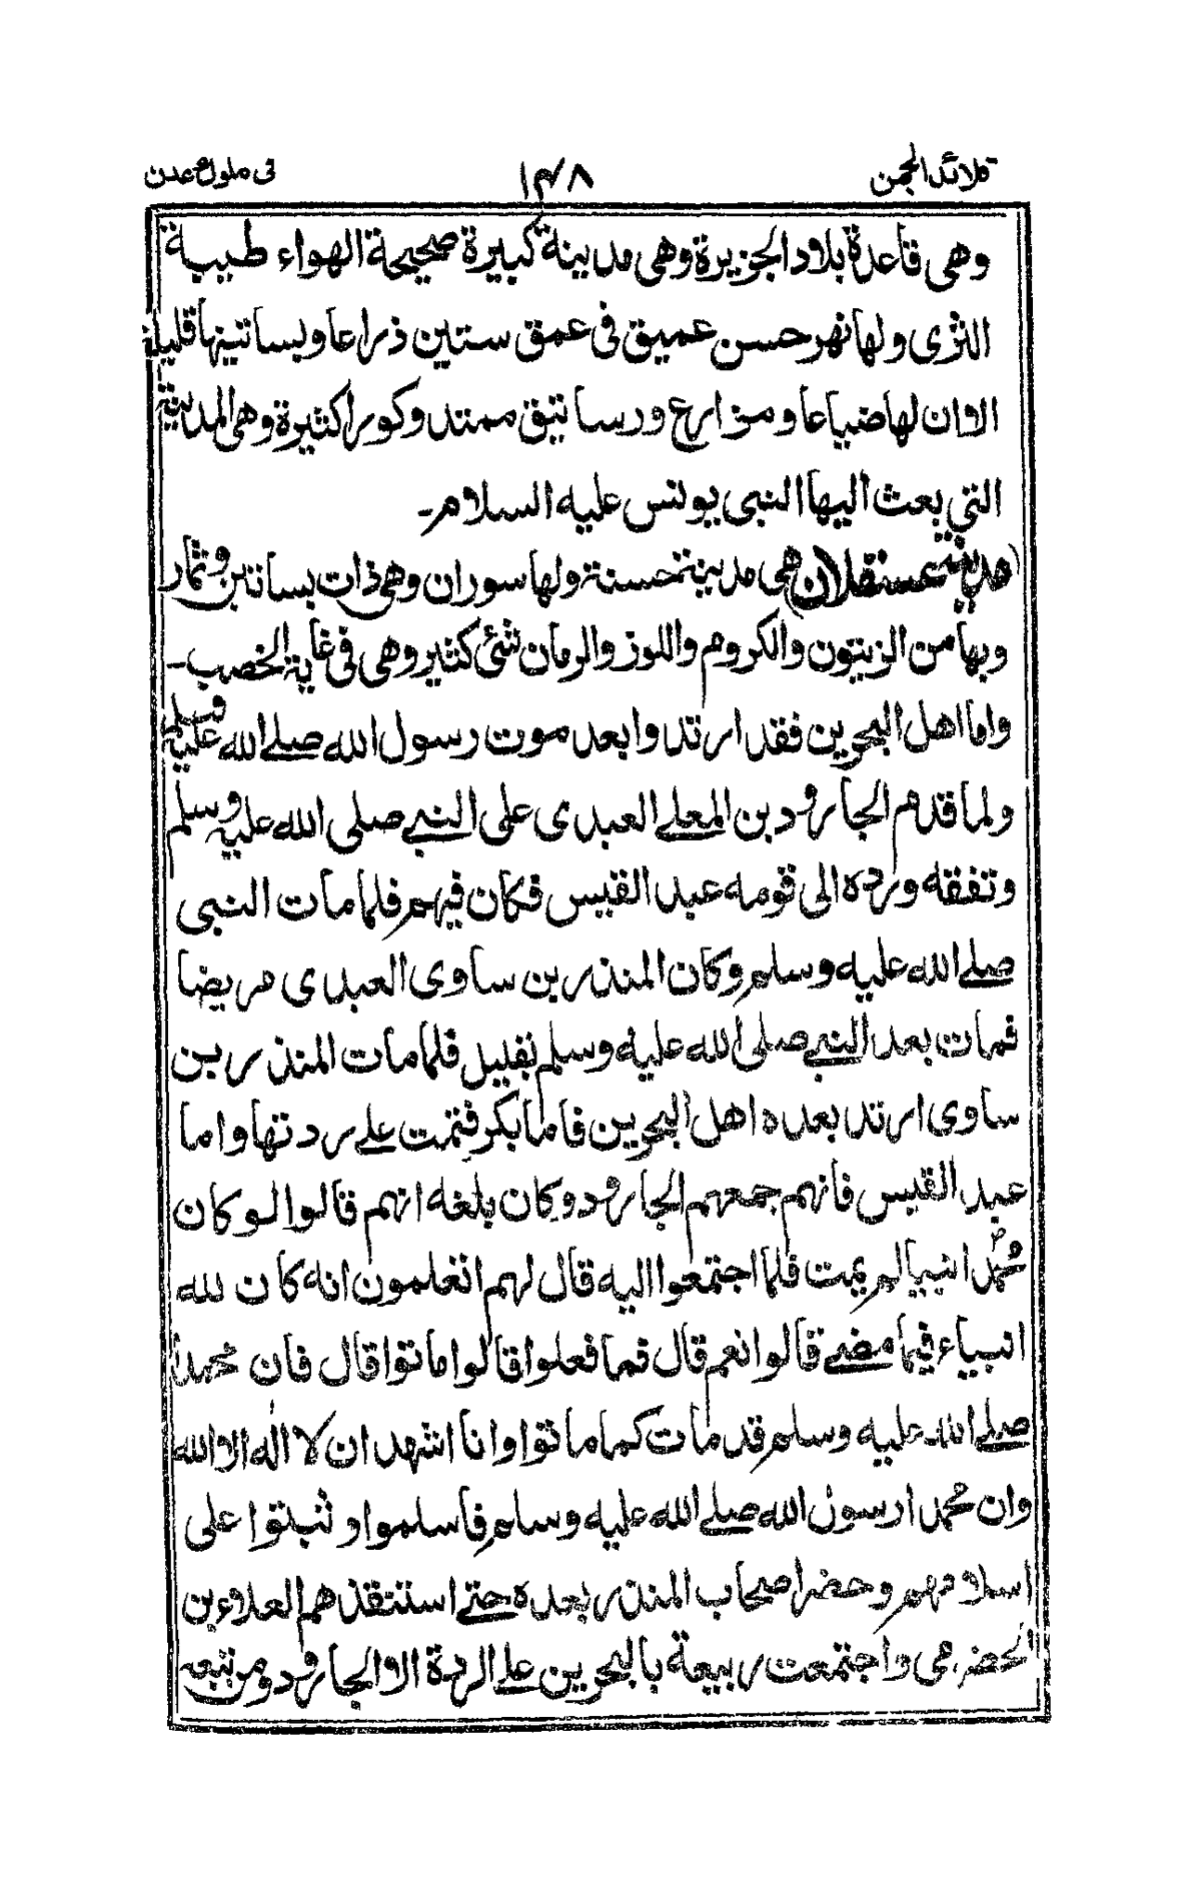 قلائد الجمن ١٣٨ فی ملوک عدن
وهی قاعدة بلاد الجزیرة وهی مدینة کبیرة صحیحة الهواء طیبة
الثرٰی ولها نهر حسن عمیق فی عمق ستین ذراعا وبساتینها قلیلة
الا ان لها ضیاعا ومزارع ورساتیق ممتد وکورا کثیرة وهی المدینة
التی بعث الیها النبی یونس علیه السلام۔
(مدینة عسقلان) هی مدینة حسنة ولها سوران وهی ذات بساتین وثمار
وبها من الزیتون والکروم واللوز والرمان شئی کثیر وهی فی غایة الخصب۔
واما اهل البحرین فقد ارتدوا بعد موت رسول الله صلے الله علیه وسلم
ولما قدم الجارود بن المعلے العبدی علی النبے صلی الله علیه وسلم
وتفقه ورده الی قومه عبد القیس فکان فیهم فلما مات النبی
صلے الله علیه وسلم وکان المنذر بن ساوی العبدی مریضا
فمات بعد النبے صلی الله علیه وسلم بقلیل فلما مات المنذر بن
ساوی ارتد بعده اهل البحرین فاما بکر فتمت علے ردتها واما
عبد القیس فانهم جمعهم الجارود وکان بلغه انهم قالوا لوکان
محمدؐ انبیا لم یمت فلما اجتمعوا الیه قال لهم اتعلمون انه کان لله
انبیاء فیما مضے قالوا نعم قال فما فعلوا قالوا ماتوا قال فان محمداً
صلے الله علیه وسلم قد مات کما ماتوا وانا اشهد ان لا الٰه الا الله
وان محمدا رسول الله صلے الله علیه وسلم فاسلموا وثبتوا علی
اسلامهم وحضر اصحاب المنذر بعده حتے استنقذهم العلاء بن
الحضرمی واجتمعت ربیعة بالبحرین علے الردة الا الجارود ومن تبعه